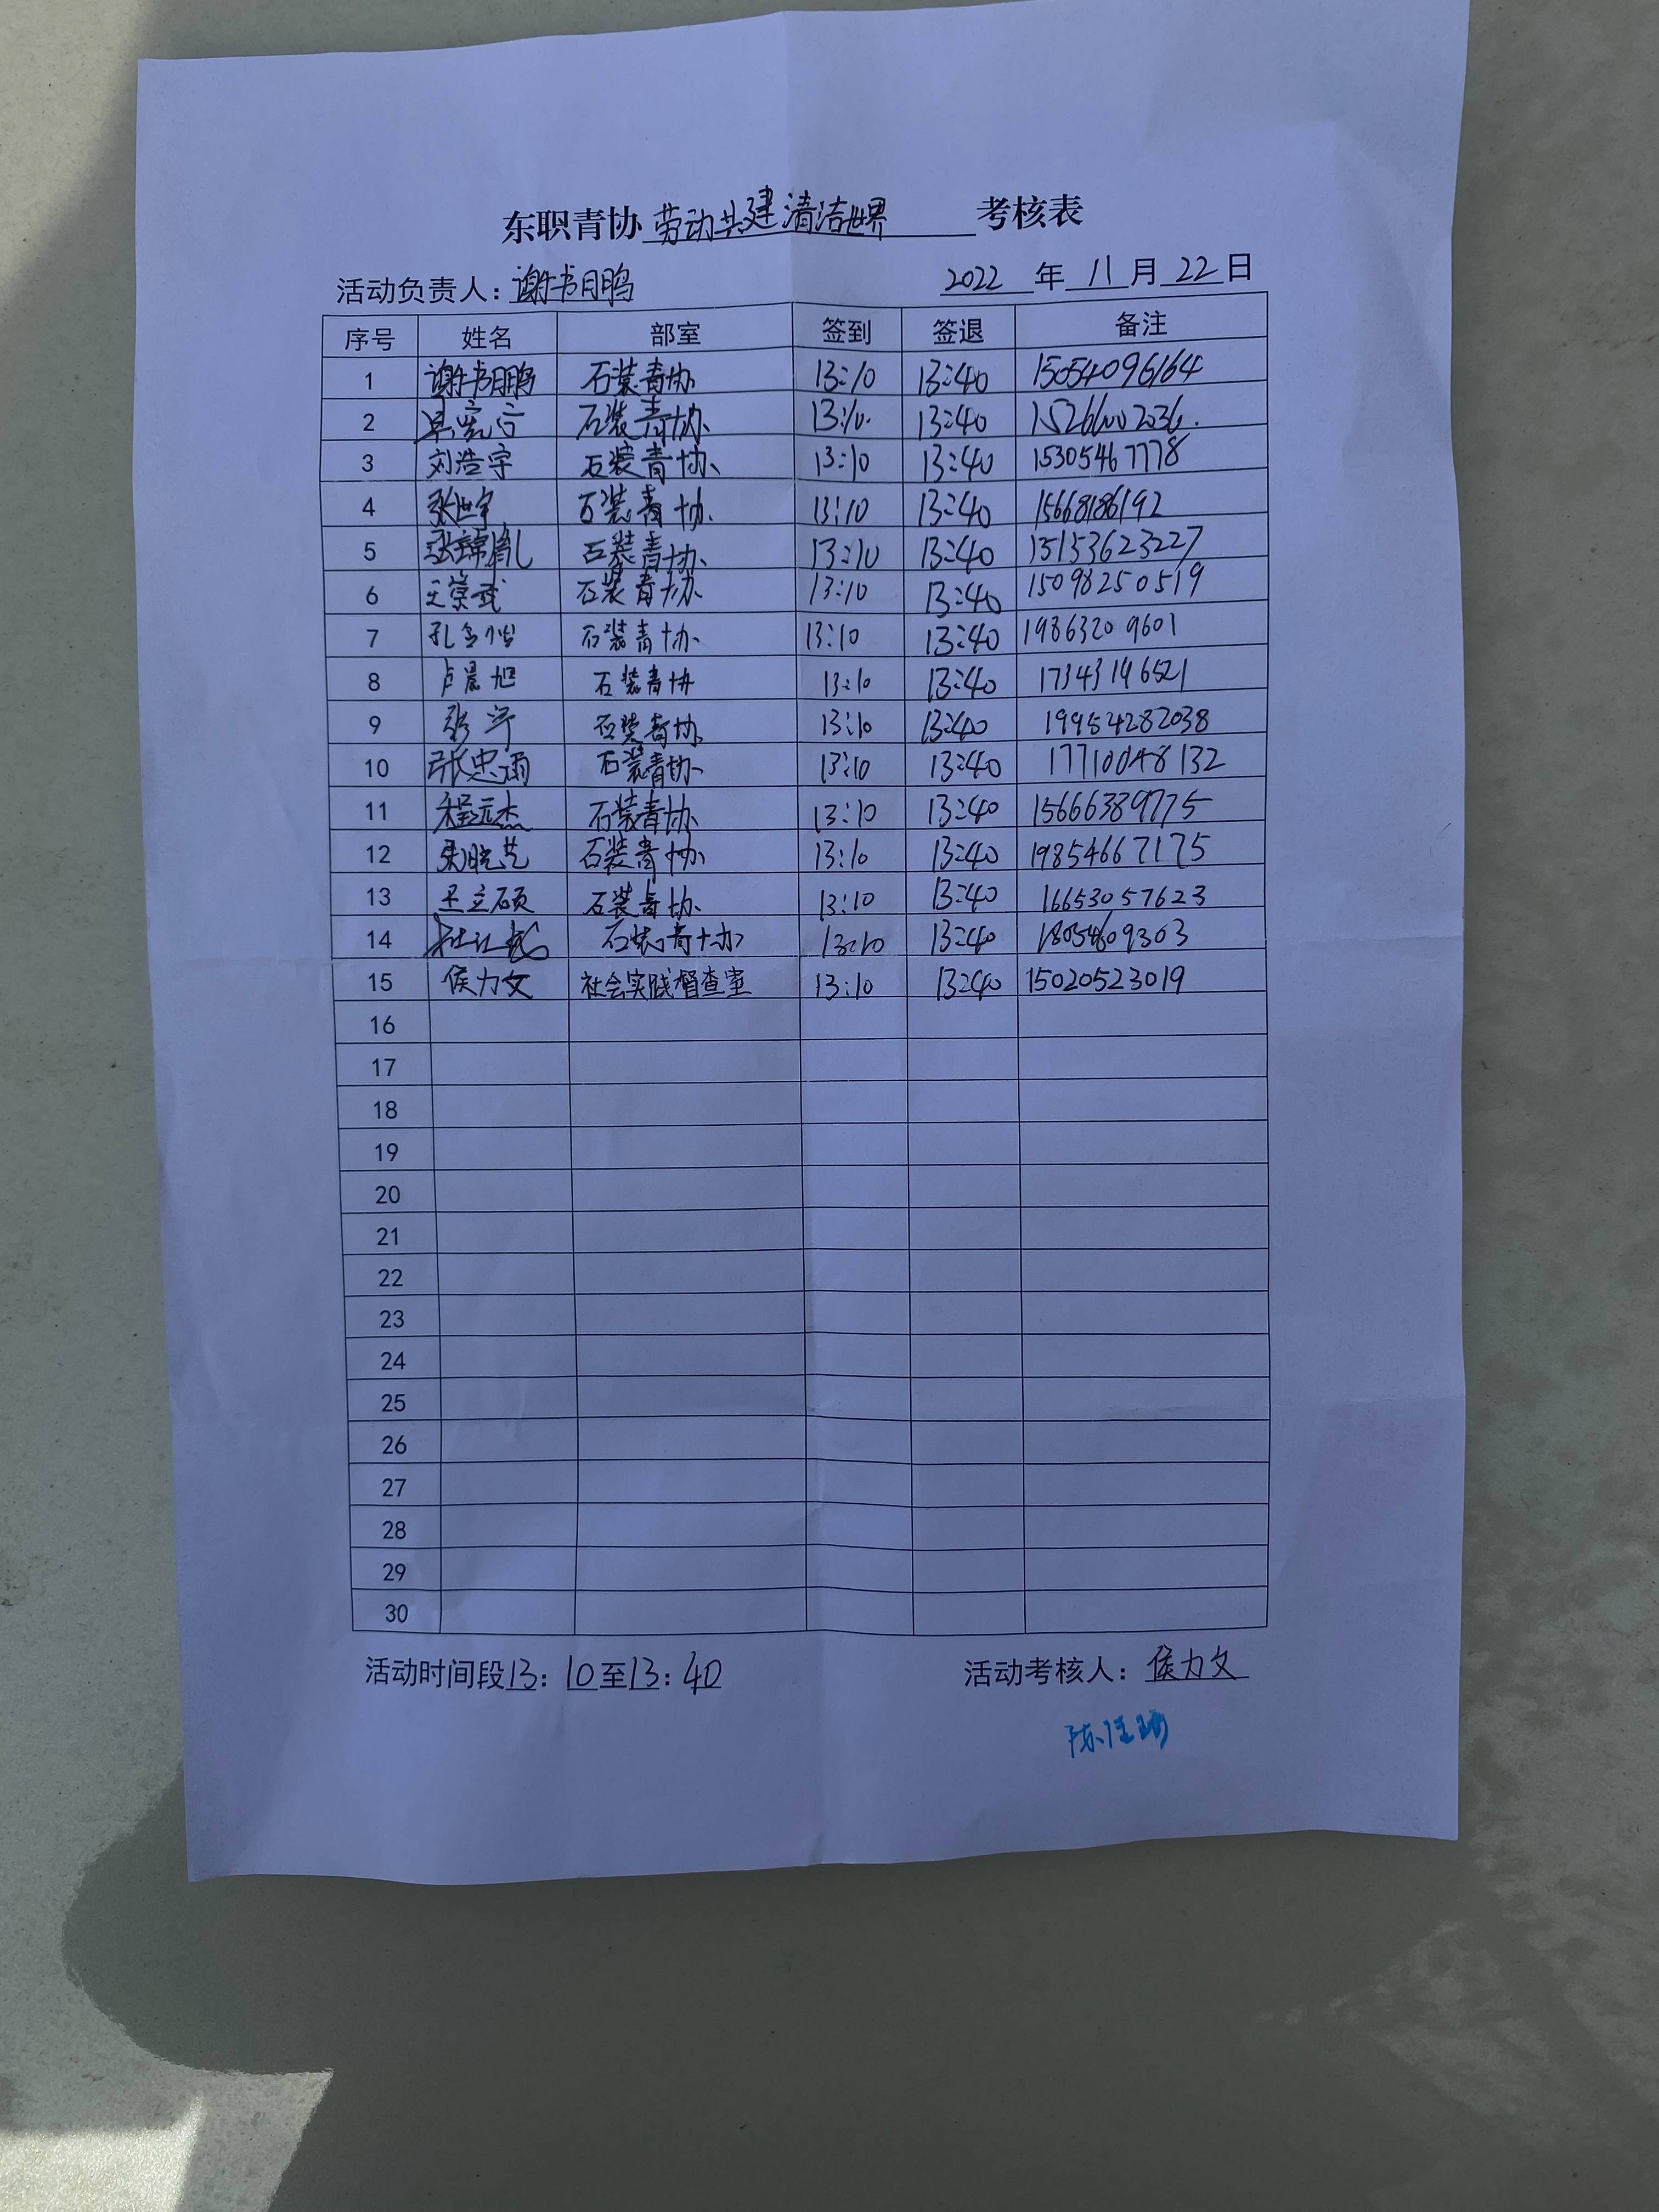 东职青协 劳动共建清洁世界 考核表
活动负责人：谢书鹏 2022 年 11 月 22 日
序号 姓名 部室 签到 签退 备注
1 谢书鹏 石装青协 13:10 13:40 15054096164
2 石装青协 13:10. 13:40
3 刘浩宇 石装青协、 13:10 13:40 15305467778
4 张世宇 石装青协. 13:10 13:40 15668186192
5 石装青协. 13:10 13:40 15153623227
6 王崇武 石装青协. 13:10 13:40 15098250519
7 石装青协. 13:10 13:40 19863209601
8 卢晨旭 石装青协 13:10 13:40 17343196521
9 石装青协 13:10 13:40 19954282038
10 张忠雨 石装青协 13:10 13:40 17710048132
11 程远杰 石装青协 13:10 13:40 15666389775
12 石装青协 13:10 13:40 19854667175
13 王立硕 石装青协. 13:10 13:40 16653057623
14 石装青协 13:10 13:40 18054609303
15 侯力文 社会实践督查室 13:10 13:40 15020523019
16
17
18
19
20
21
22
23
24
25
26
27
28
29
30
活动时间段13：10至13：40 活动考核人：侯力文